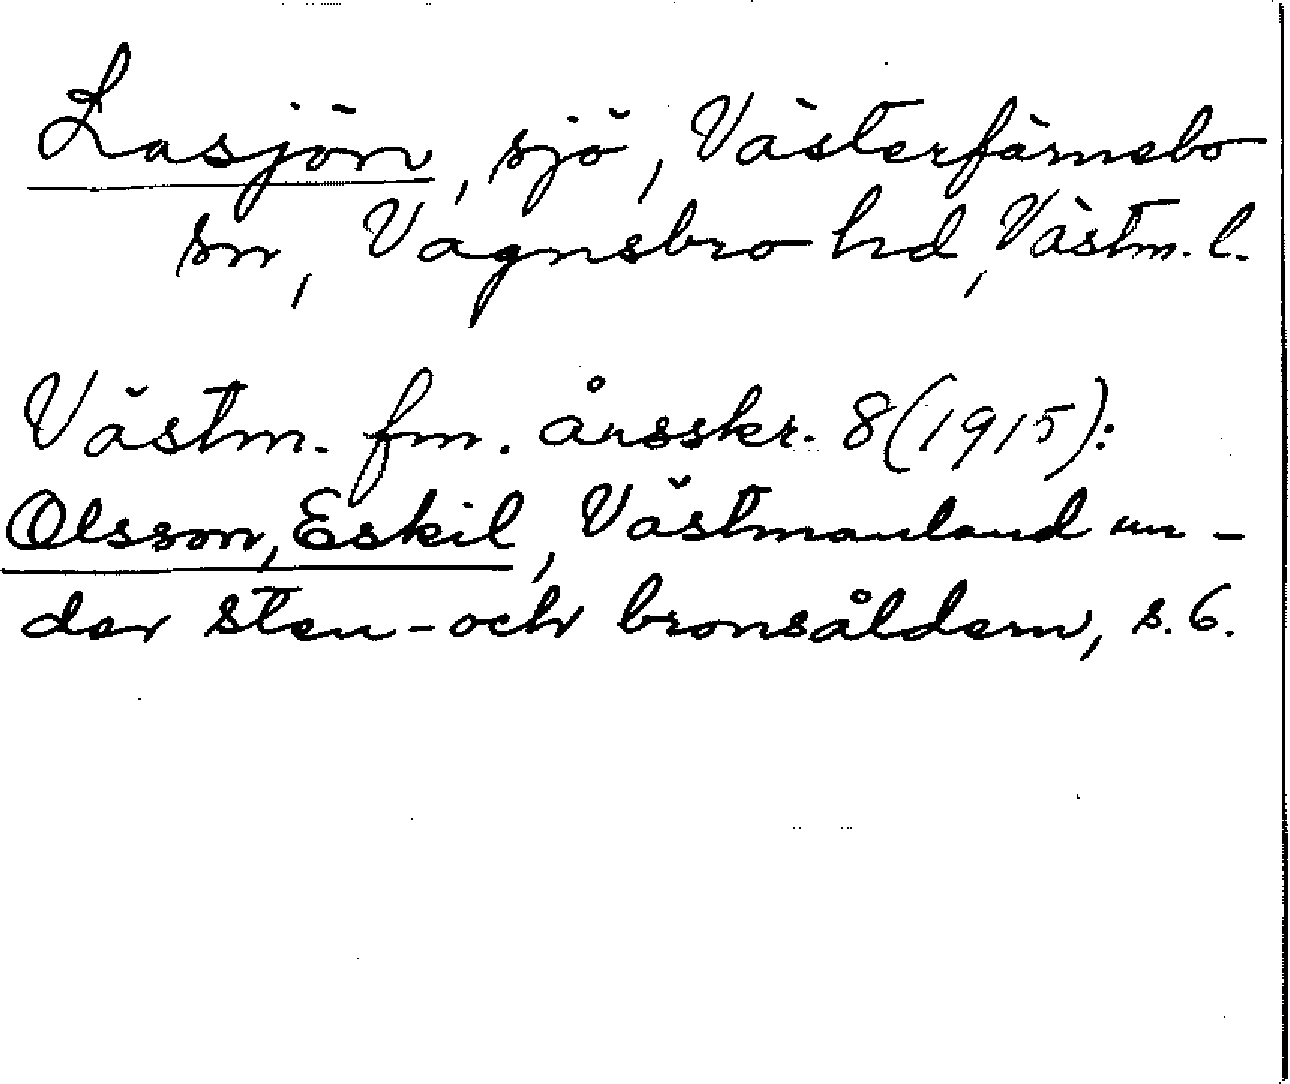 Lasjön, sjö, Västerfärnebo
sn, Vagnsbro hd, Västm. l.
Västm. fm. årsskr. 8 (1915):
Olsson, Eskil, Västmanland un-
der sten- och bronsåldern, s. 6.